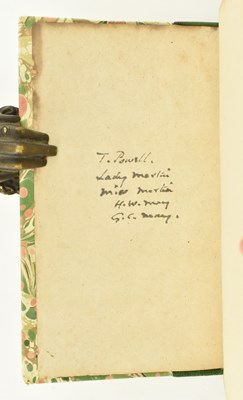 T. Powell.
Lady Martin
Miss Martin
H. W. May
G. C. May.